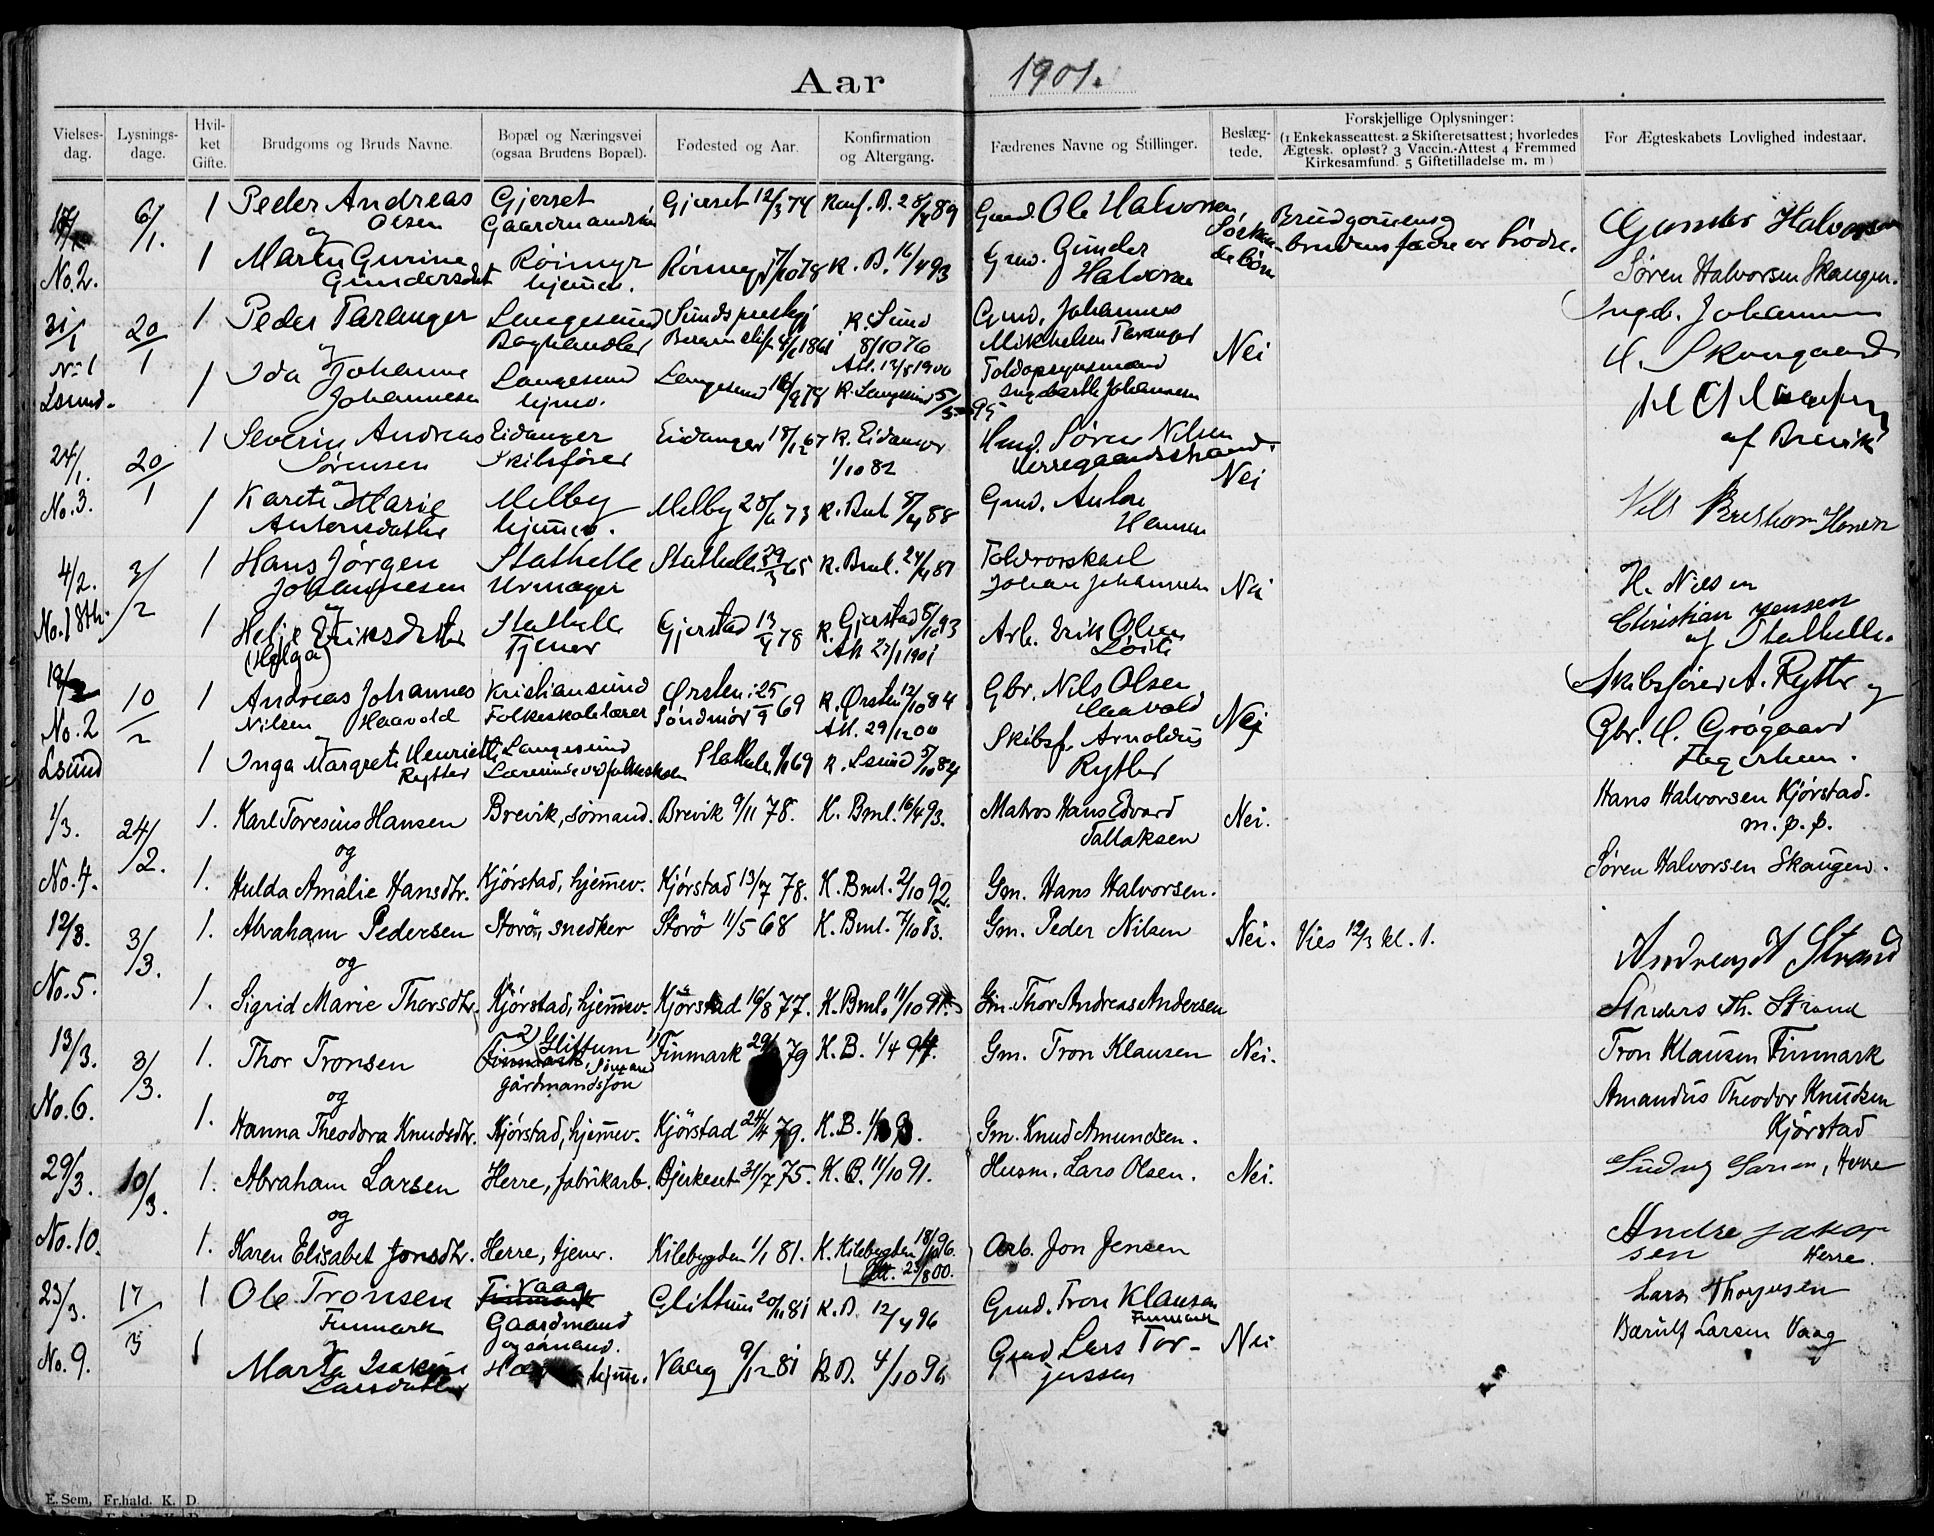 Aar 1901.
Vielses-dag. Lysnings-dage. Hvil-ket Gifte. Brudgoms og Bruds Navne. Bopæl og Næringsvei (ogsaa Brudens Bopæl). Fødested og Aar. Konfirmation og Altergang. Fædrenes Navne og Stillinger. Beslæg-tede. Forskjellige Oplysninger: (1 Enkekasseattest. 2 Skifteretsattest; hvorledes Ægtesk. opløst? 3 Vaccin.-Attest 4 Fremmed Kirkesamfund. 5 Giftetilladelse m. m) For Ægteskabets Lovlighed indestaar.
6/1. 1 Peder Andreas Gjerset Gjerset 12/3 74 Konf. B. 28/4 89 Gmd. Ole Halvorsen Brudgommens Gunder Halvorsen
Olsen Gaardmandssøn
og brudens fædre er brødre.
No. 2. 1 Marten Gurine Røimyr Røimyr 7/10 78 K. B. 16/4 93 Gmd. Gunder Søren Halvorsen Skaugen.
Gundersdat hjemev. Halvorsen
31/1 20/1 1 Peder Taranger Langesund Sunds prestegj K. Sund Gmd. Johannes
Boghandler 8/10 76 Mikkelsen Taranger Nei
No 1 og Alt. 12/8 1900
Lsund. 1 Ida Johanne Langesund Langesund K. Langesund 5/5 95 Toldopsynsmand
Johannesen hjmv. Ingebarth Johannesen
af Brevik
24/1. 20/1 1 Severin Andreas Eidanger Eidanger 18/12 67 K. Eidanger Hmd. Søren Nilsen
Sørensen Skibsfører 1/10 82 Nei
No. 3. og
1 Karen Marie Melby Melby 28/6 73 K. Bml 8/4 88 Gmd. Anton
Antonsdatter hjemev. Hansen
4/2. 3/2 1 Hans Jørgen Stathelle Stathelle 29/3 65 K. Bml. 24/4 81
Johannesen Urmager Johan Johannesen Nei H. Nilsen
No. 1 Sth. og Christian Jensen
1 Helje Eriksdatter Stathelle Gjerstad 13/4 78 K. Gjerstad 8/10 93 Arb. Erik Olsen af Stathelle.
(Helga) Tjener Alt 27/1 1901
10/2 1 Andreas Johannes Kristiansund Ørsten i 25/9 69 K. Ørsten 12/10 84 Gbr. Nils Olsen Skibsfører A. Rytter og
Nilsen Haavold Folkeskolelærer Søndmør Alt. 29/12 00 Haavold Nei
No. 2 og Gbr. H. Grøgaard
Lsund 1 Inga Margrete Henriette Langesund Stathelle K. Lsund 5/10 84 Skibsf. Arnoldus
Rytter Lærerinde ved folkeskolen Rytter
1/3. 24/2. 1. Karl Toresius Hansen Brevik, sømand. Brevik 9/11 78. K. Bml. 16/4 93. Matros Hans Edvard Nei. Hans Halvorsen Kjørstad.
Tallaksen m. p. p.
og
No. 4. 1. Hulda Amalie Hansdtr. Kjørstad, hjemev. Kjørstad 13/7 78. K. Bml. 2/10 92. Gm. Hans Halvorsen. Søren Halvorsen Skaugen.
12/3. 3/3. 1. Abraham Pedersen Storö, snedker Storö 11/5 68 K. Bml. 7/10 83. Gm. Peder Nilsen Nei. Vies 12/3 kl. 1.
og
No. 5. 1. Sigrid Marie Thorsdtr. Kjørstad, hjemev. Kjørstad 16/8 77. K. Bml. 11/10 91. Gm. Thor Andreas Andersen Anders Th. Strand
13/3. 3/3. 1. Thor Tronsen 2) Glittum 1) Finmark, Sømand gårdmandssøn Finmark 79 K. B. 1/4 94. Gm. Tron Klausen Nei. Tron Klausen Finmark
og Amandus Theodor Knudsen
No. 6. 1. Hanna Theodora Knudsdtr. Kjørstad, hjemev. Kjørstad 24/4 79. K. B. Gm. Knud Amundsen. Kjørstad
29/3. 10/3. 1. Abraham Larsen Herre, fabrikarb. Bjerkeset 31/7 75. K. B. 11/10 91. Husm. Lars Olsen. Nei. Herre
og
No. 10. 1. Karen Elisabet Jonsdtr. Herre, tjener. Kilebygden 1/1 81. K. Kilebygden 18/10 96. Arb. Jon Jensen Andre Jakobsen
Alt. 23/8 00. Herre.
23/3. 17/3 1 Ole Tronsen Vaag Finmark Glittum 20/11 81 K. B. 12/4 96 Gmd. Tron Klausen Lars Thorjusen
Finmark Gaardmand Finmark
og og sømand. Larsen Vaag
No. 9. 1 hjme. Vaag 9/12 81 K. B. 4/10 96 Gmd Lars Tor- Nei
Larsdatter jussen
E. Sem, Fr.hald. K. D.